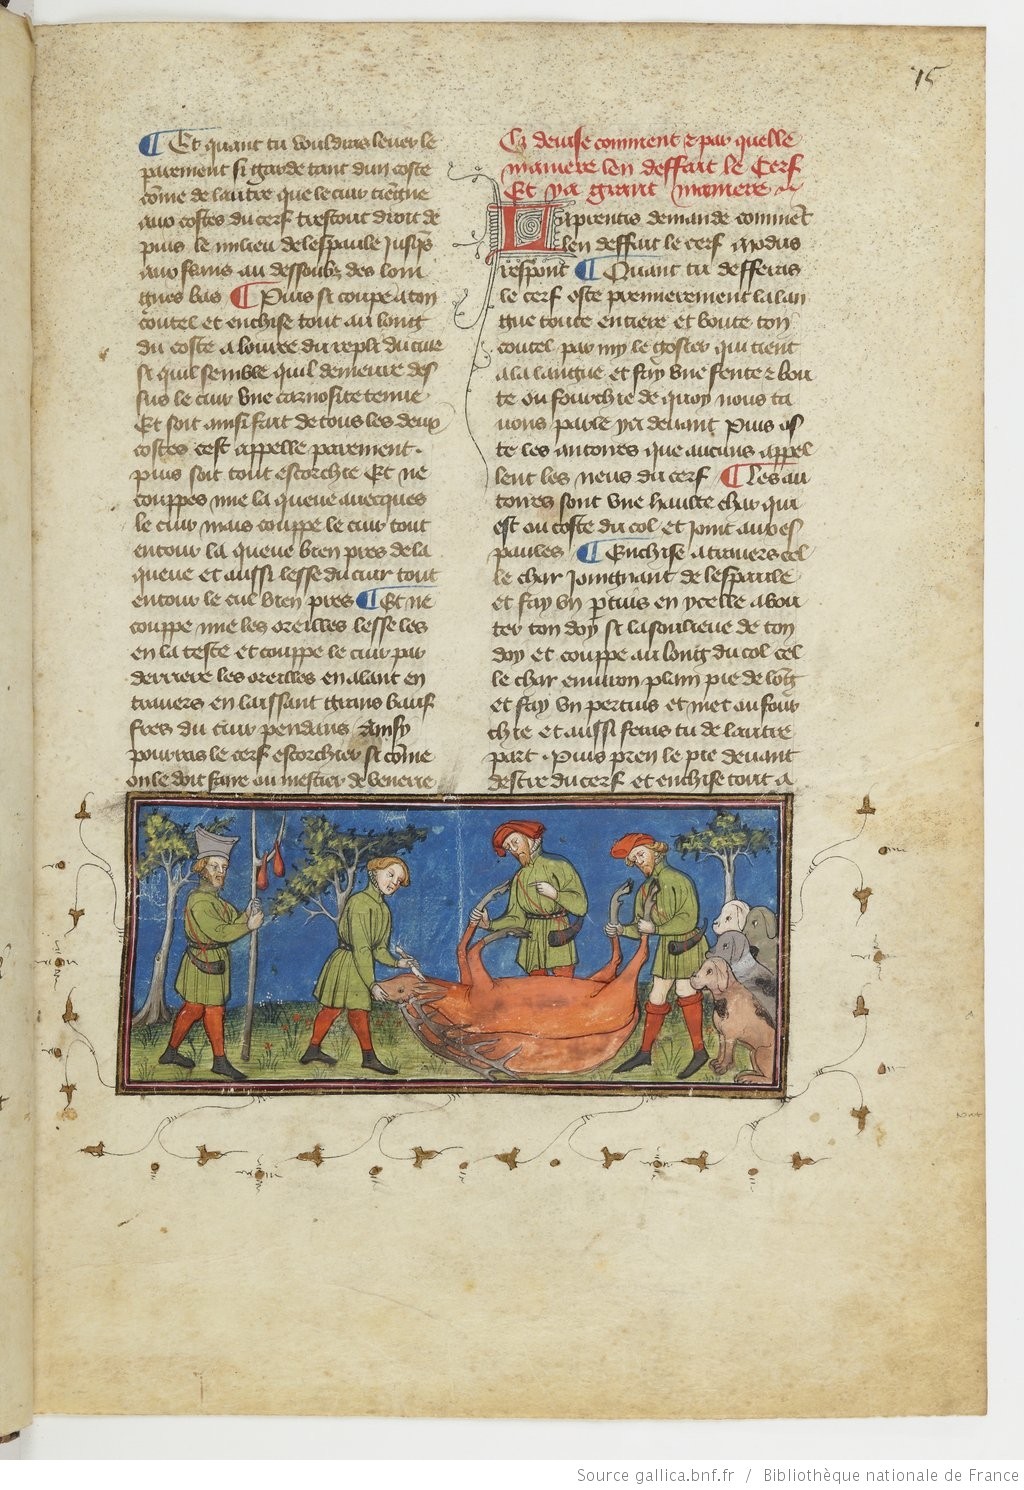 15
Et quant tu vouldras lever le
parement si garde tant dun coste
cōme de lautre que le cuir tiegne
aux costes du cerf trestout droit de
puis le milieu de lespaule jusqs
aux flans au dessoubz des lon
gues bas Puis si coupe a ton
coutel et enchise tout au long
du coste a louvre du repli du cuir
si quil semble quil demeure des
sus le cuir une carnosite tenue
Et soit ainsi fait de tous les deux
costes cest appelle parement.
puis soit tout escorchie Et ne
couppes mie la queue avecques
le cuir mais couppe le cuir tout
entour la queue bien pres de la
queue et aussi lesse du cuir tout
entour le cul bien pres Et ne
couppe mie les oreilles lesse les
en la teste et couppe le cuir par
derriere les oreilles en alant en
travers en laissant grans
du cuir pendans Ainsy
pourras le cerf escorchier si cōme
on le doit faire ou mestier de venerie
Cy devise comment et par quelle
maniere len deffait le Cerf
Et y a grant maniere
Laprentis demande commēt
len deffait le cerf Modus
respont Quant tu defferas
le cerf oste premierement la lan
gue toute entiere et boute ton
coutel par my le gosier qui tient
a la langue et fay une fente et bou
te ou fourchie de quoy nous ta
vons parle ya devant Puis os
te les antoires que aucuns appel
lent les neus du cerf Les an
toires sont une haulte char qui
est ou coste du col et joint au des
paules Enchise a travers cel
le char joingnant de lespaule
et fay un ptuis en ycelle a bou
ter ton doy si la soulieve de ton
doy et couppe au long du col cel
le char environ plain pie de lōg
et fay un pertuis et met ou four
chie et aussi feras tu de lautre
part. Puis pren le pie devant
destre du cerf et enchise tout a
Source gallica.bnf.fr / Bibliothèque nationale de France